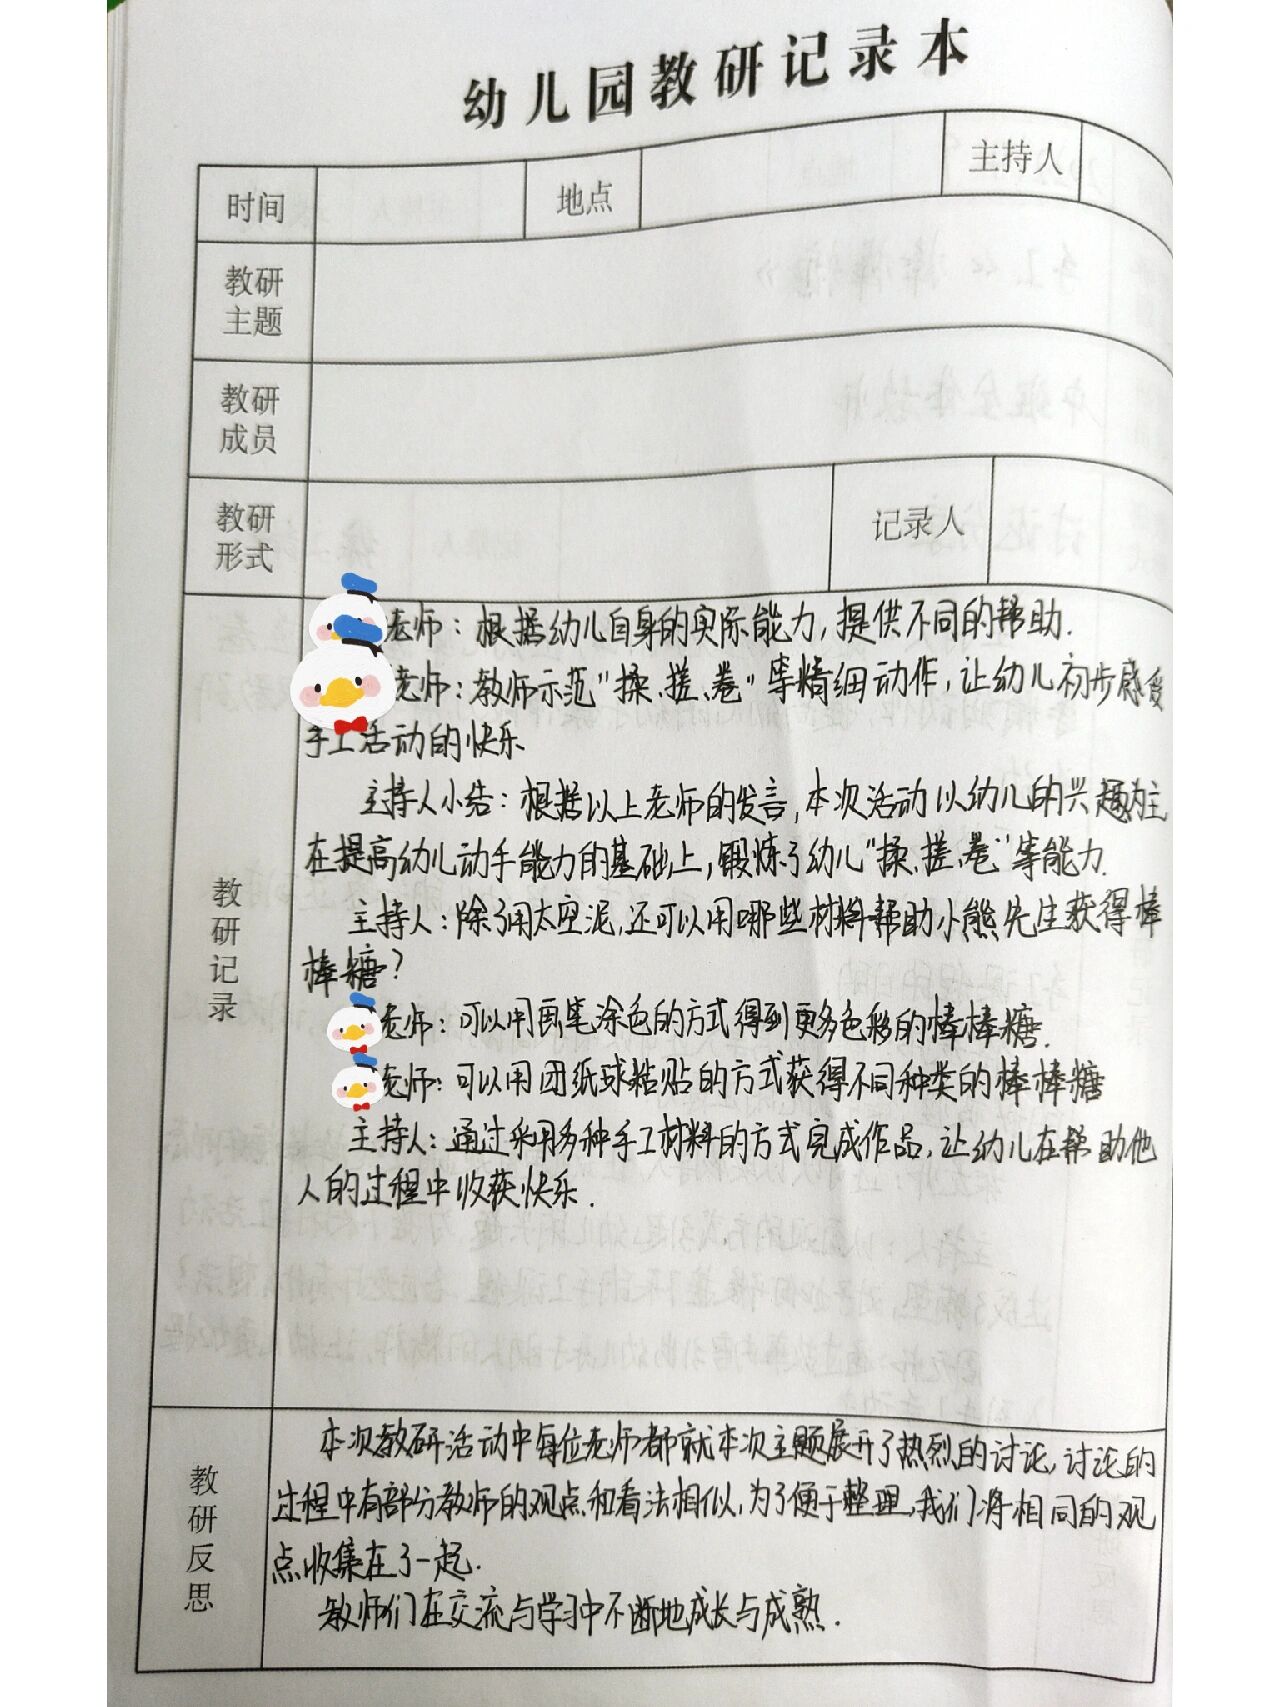 幼儿园教研记录本
时间 地点 主持人
教研
主题
教研
成员
教研
形式 记录人
教研记录
老师：根据幼儿自身的实际能力，提供不同的帮助.
老师：教师示范"揉、搓、卷"等精细动作，让幼儿初步感受
手工活动的快乐
主持人小结：根据以上老师的发言，本次活动以幼儿的兴趣为主
在提高幼儿动手能力的基础上，锻炼了幼儿"揉、搓、卷"等能力.
主持人：除了用太空泥，还可以用哪些材料帮助小熊先生获得棒
棒糖？
老师：可以用画笔涂色的方式得到更多色彩的棒棒糖.
老师：可以用团纸球粘贴的方式获得不同种类的棒棒糖
主持人：通过采用多种手工材料的方式完成作品，让幼儿在帮助他
人的过程中收获快乐.
教研反思
本次教研活动中每位老师都就本次主题展开了热烈的讨论，讨论的
过程中有部分教师的观点和看法相似，为了便于整理，我们将相同的观
点收集在了一起.
教师们在交流与学习中不断地成长与成熟.